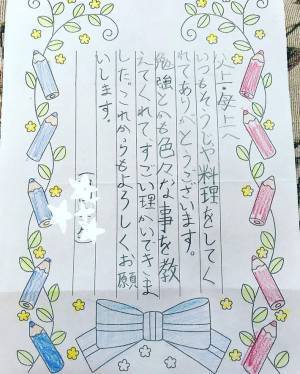 父上・母上へ
いつもそうじや料理をしてく
れてありがとうございます。
勉強とかも色々な事を教
えてくれて、すごい理かいできま
した。これからもよろしくお願
いします。